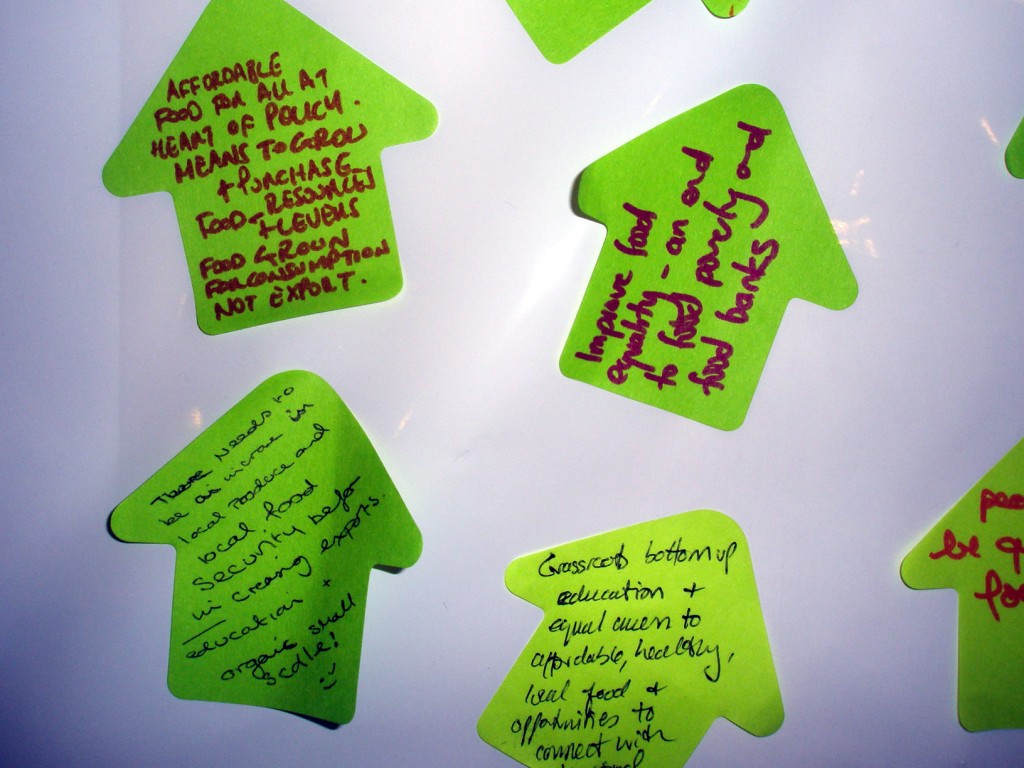 AFFORDABLE
FOOD FOR ALL AT
HEART OF POLICY.
MEANS TO GROW
+ PURCHASE
FOOD - RESOURCES
+ LEVERS
FOOD GROWN
FOR CONSUMPTION
NOT EXPORT.
Improve food
equality - an end
to food poverty and
food banks
There needs to
be an increase in
local produce and
local food
security before
increasing exports.
education +
organic small
scale!
Grassroots bottom up
education +
equal access to
affordable, healthy,
local food +
opportunities to
connect with
be